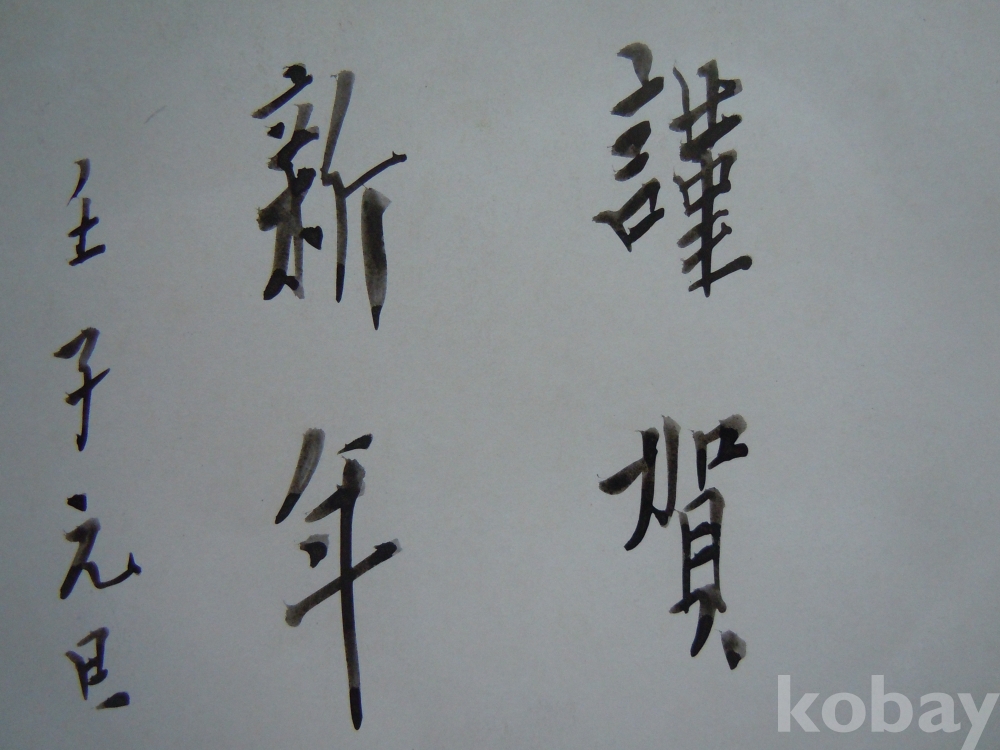 謹賀
新年
壬子元旦
kobay